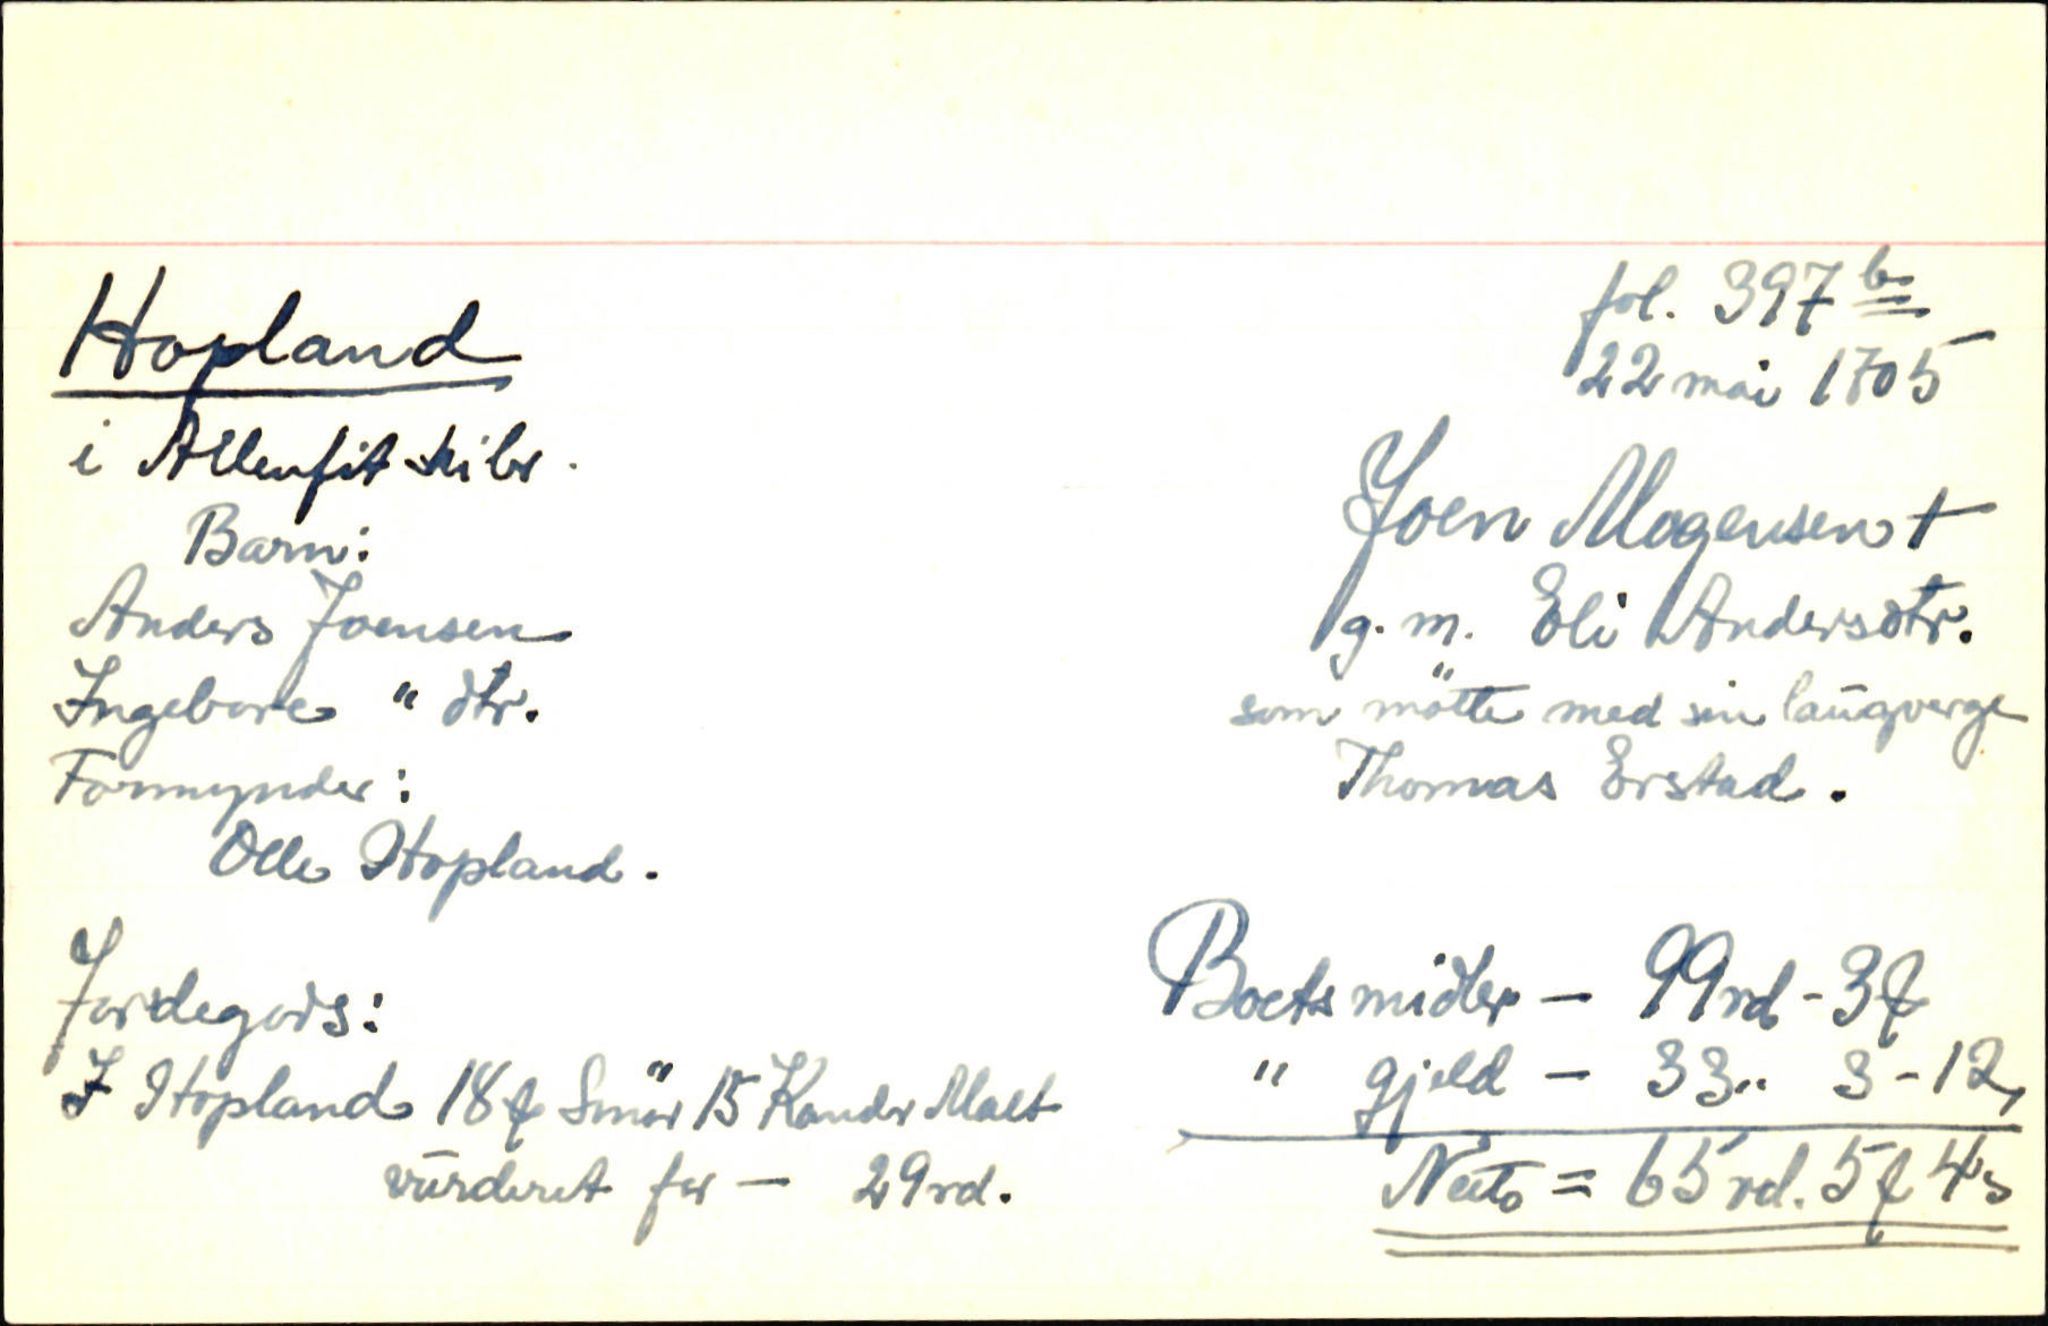 Hopland
i Allenfit skibr.
Barn:
Anders Joensen
Ingebore " dtr.
Formynder:
Olle Hopland.
Jordegods:
I Hopland 18 ƒ Smör 15 Kander Malt
vūrderet for — 29 rd.
fol. 397 b
22 mai 1705
Joen Mogensen †
g. m. Eli Andersdtr.
som mötte med sin laūgverge
Thomas Erstad.
Boets midler — 99 rd - 3 ƒ
" gjeld — 33 " 3 - 12
Netto = 65 rd. 5 ƒ 4 s